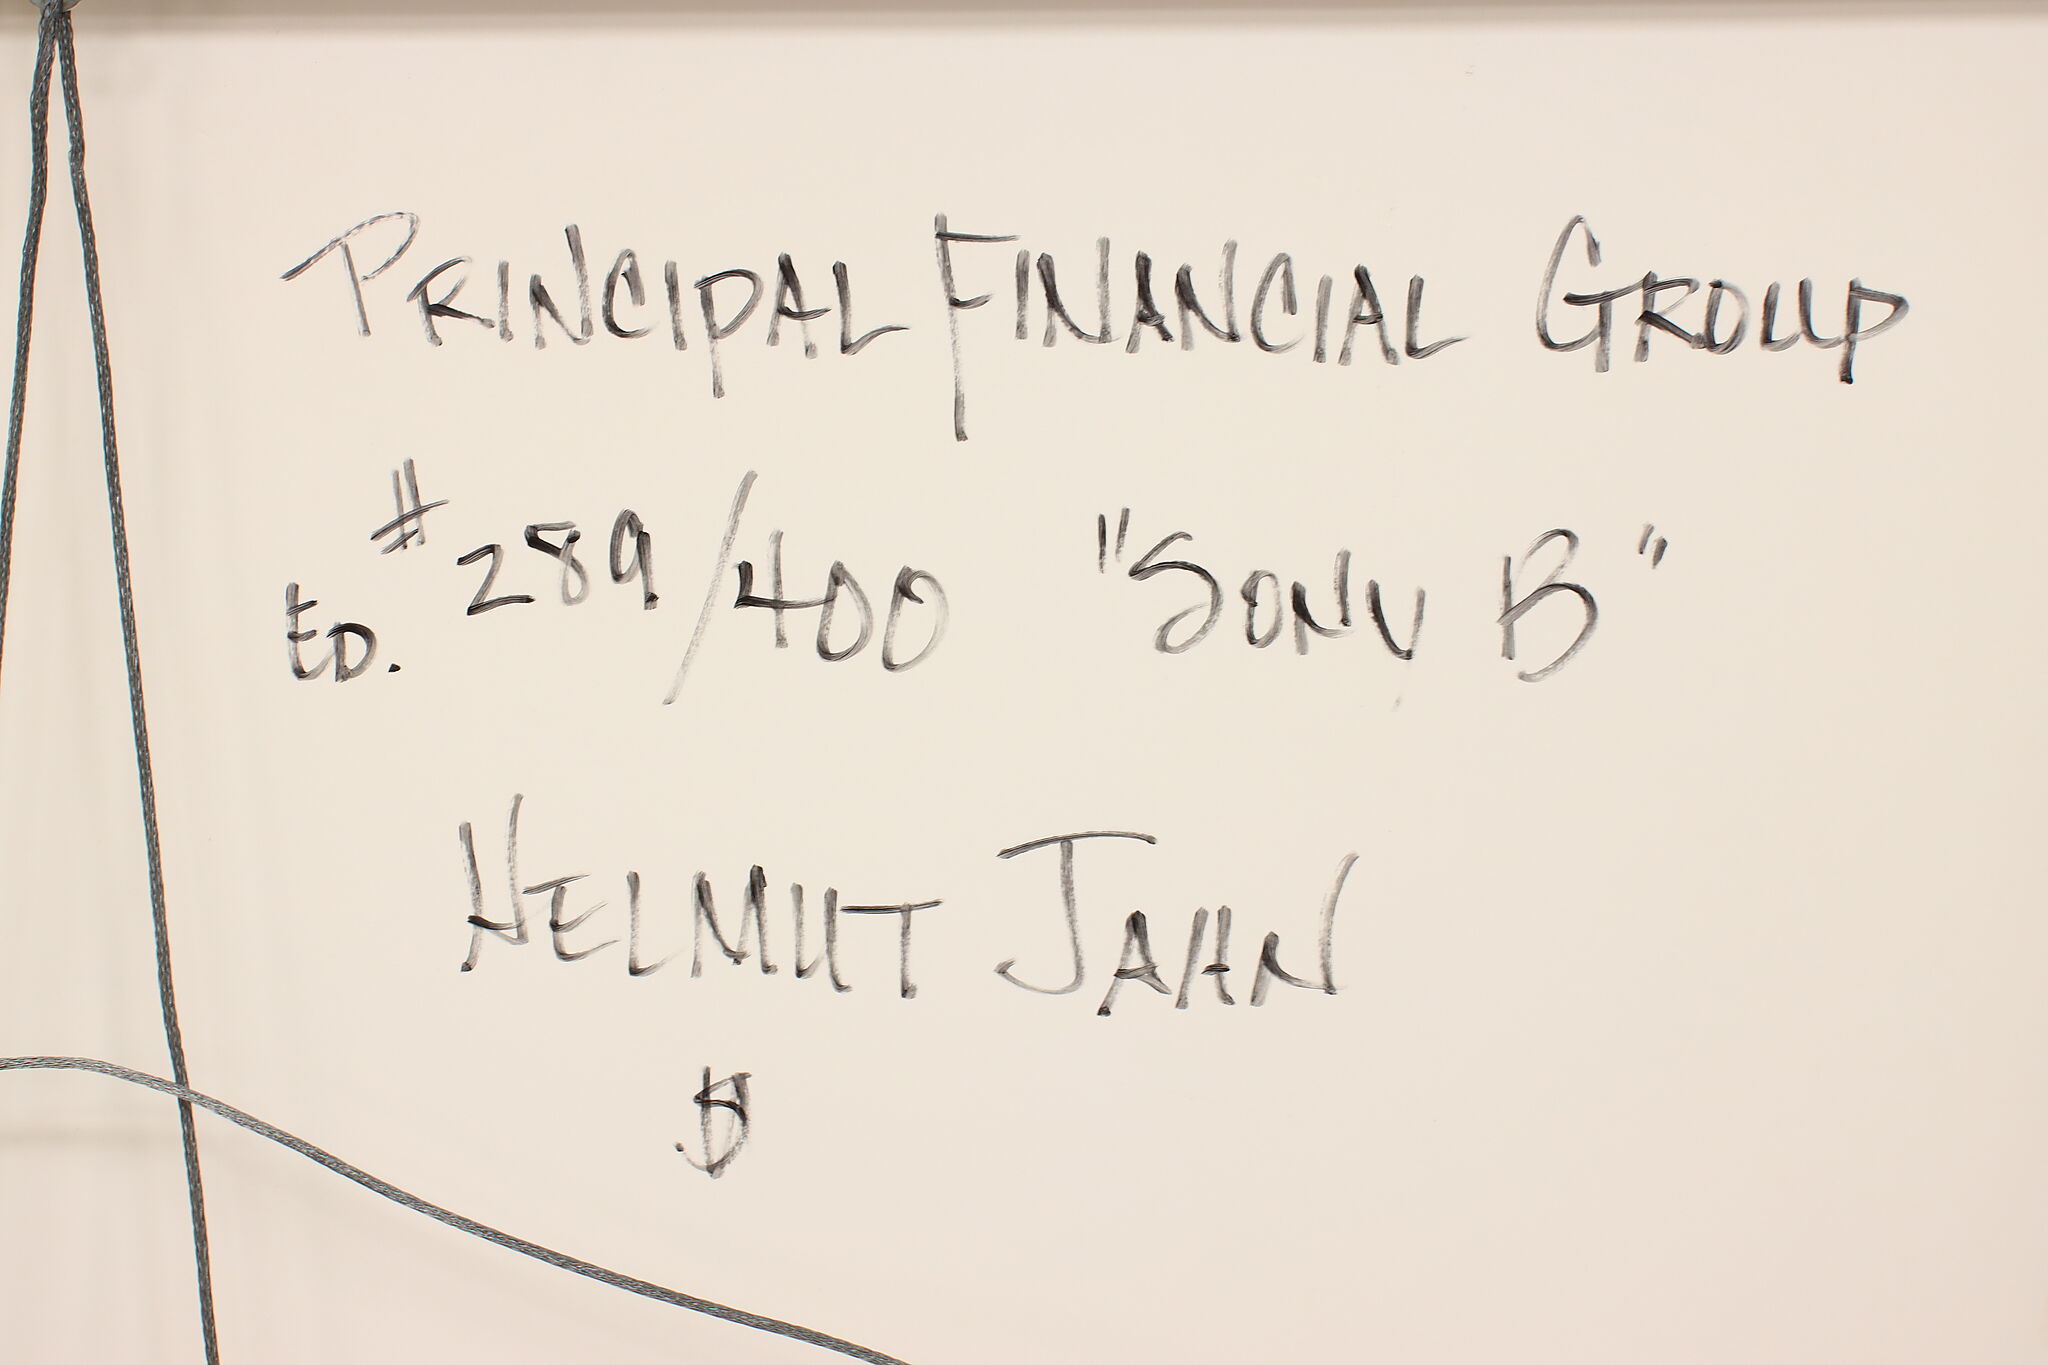 PRINCIPAL FINANCIAL GROUP
ED. #289/400 "SONY B"
HELMUT JAHN
$